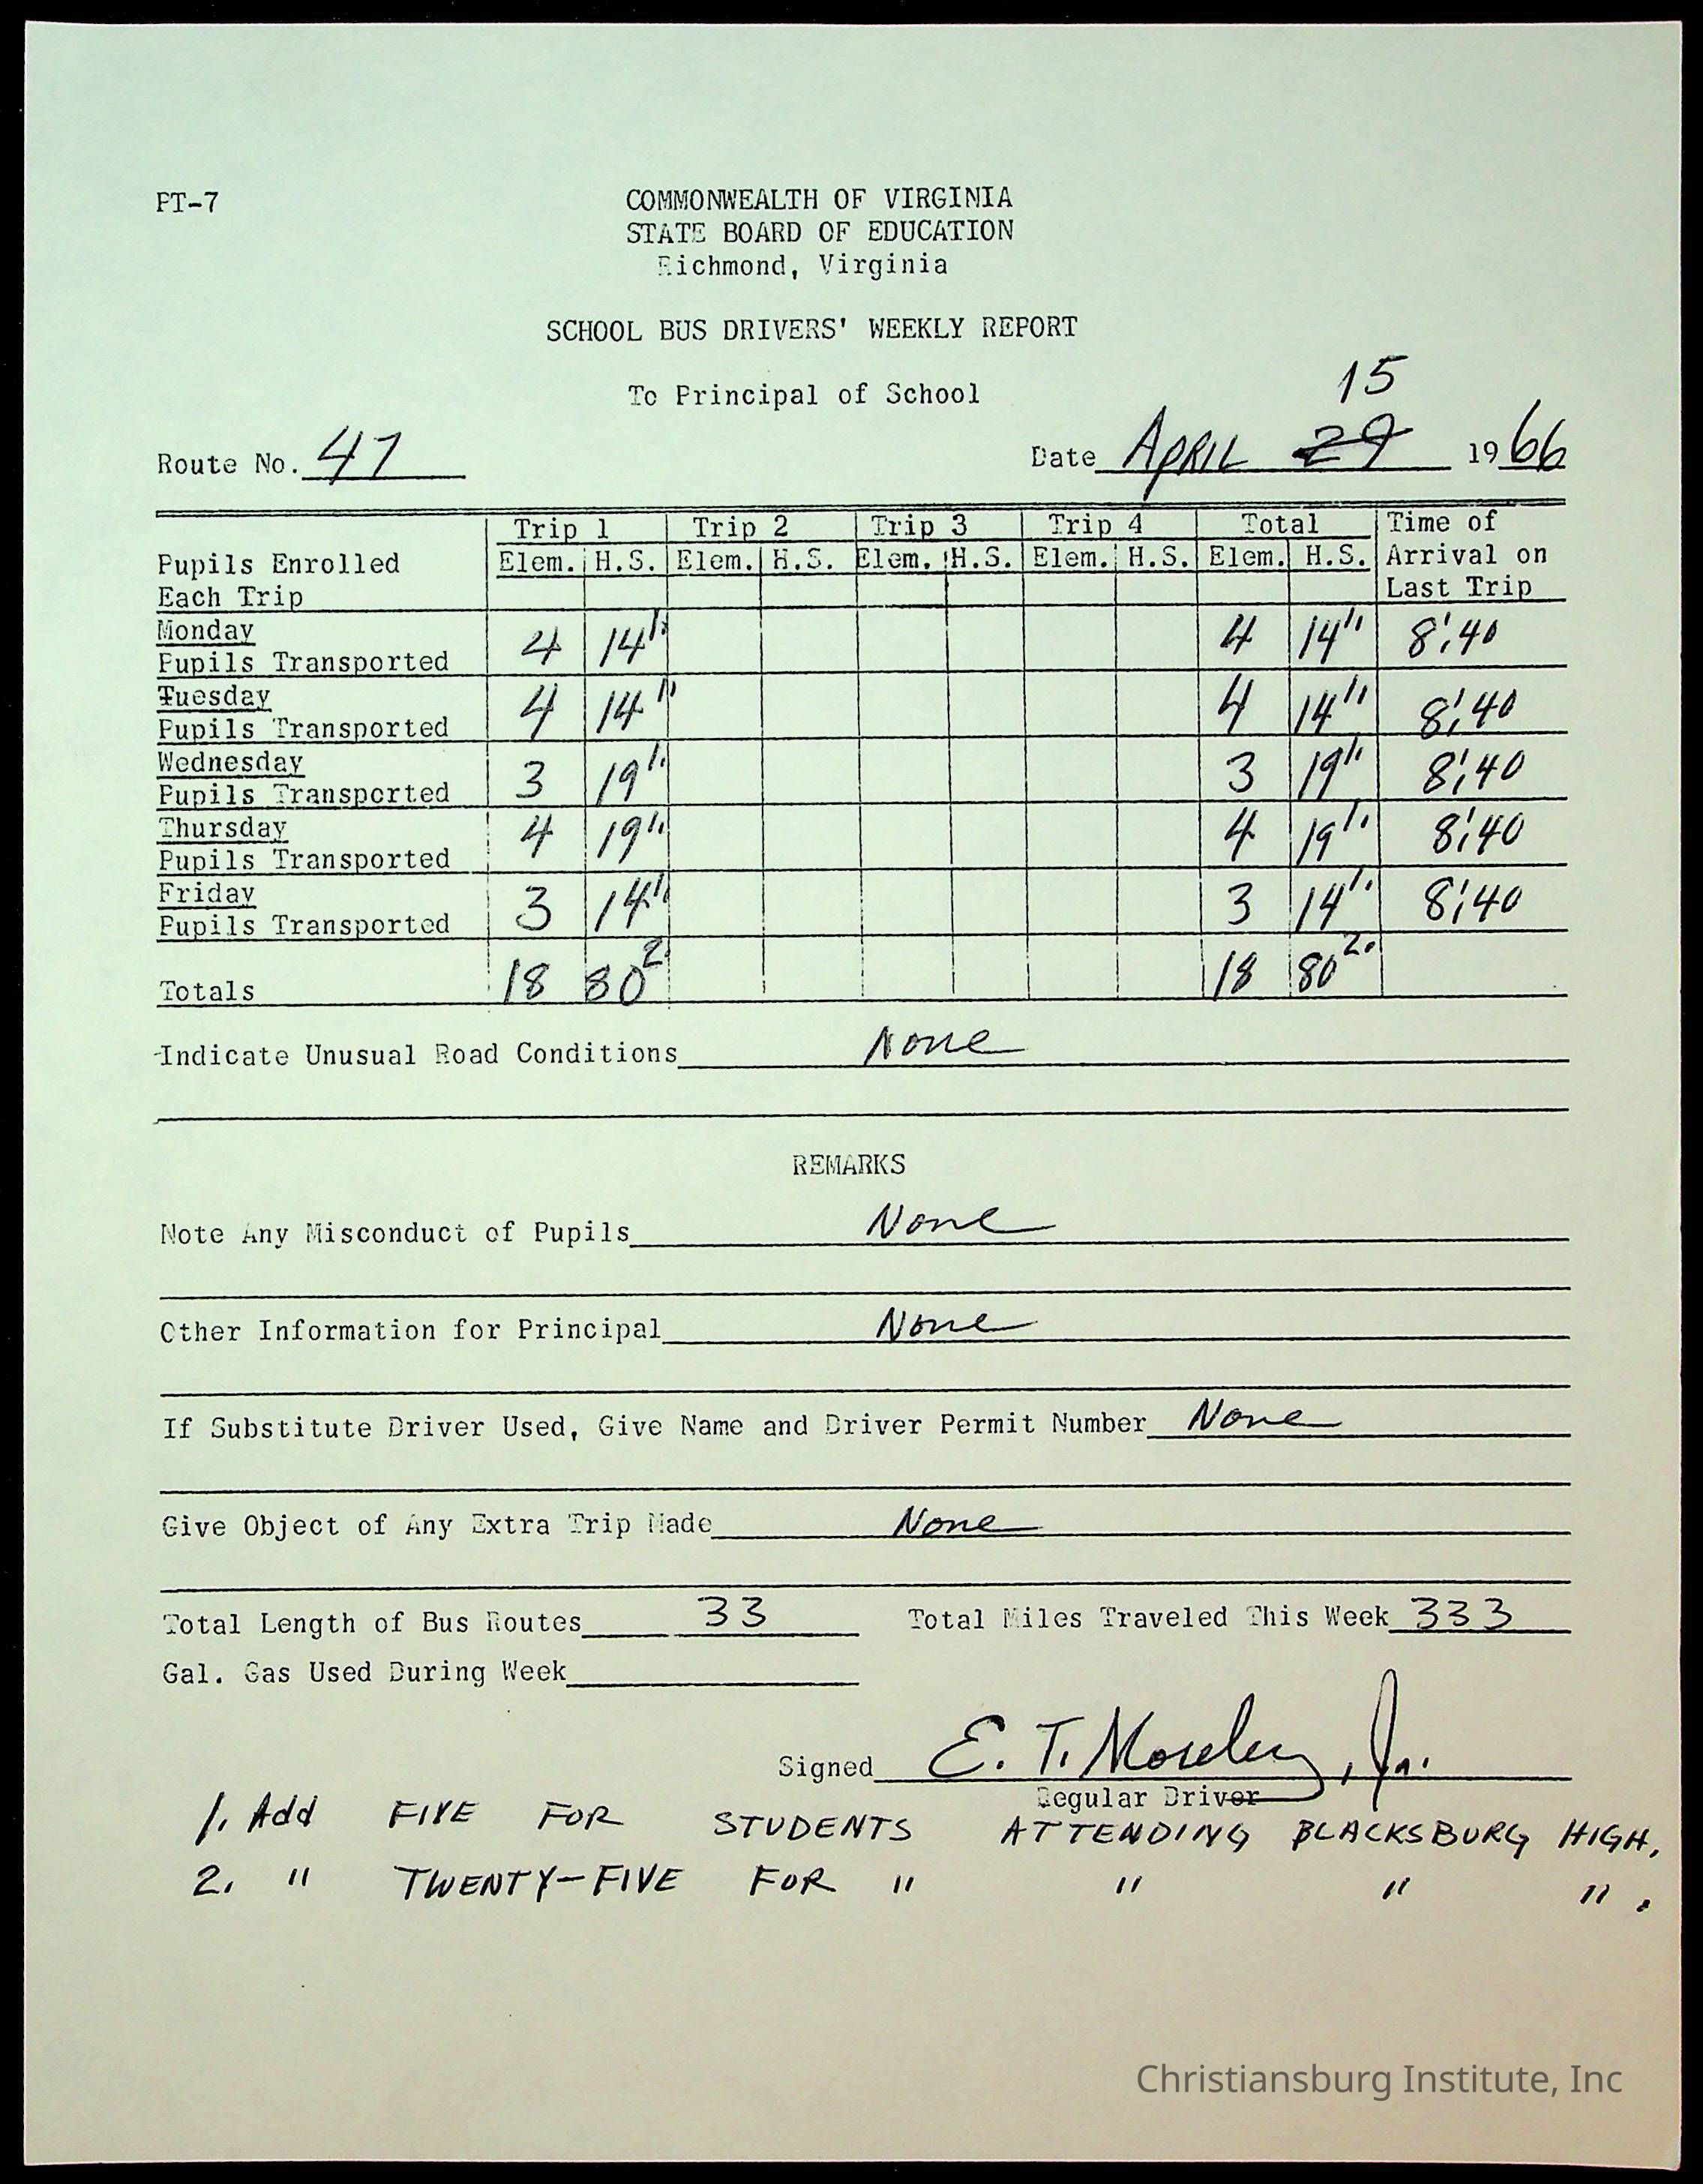 PT-7
COMMONWEALTH OF VIRGINIA
STATE BOARD OF EDUCATION
Richmond, Virginia
SCHOOL BUS DRIVERS' WEEKLY REPORT
To Principal of School
15
Route No. 47 Date APRIL 29 1966
Trip 1 Trip 2 Trip 3 Trip 4 Total Time of
Pupils Enrolled Elem. H.S. Elem. H.S. Elem. H.S. Elem. H.S. Elem. H.S. Arrival on
Each Trip Last Trip
Monday
Pupils Transported 4 14 1. 4 14 1. 8:40
Tuesday
Pupils Transported 4 14 1. 4 14 1. 8:40
Wednesday
Pupils Transported 3 19 1. 3 19 1. 8:40
Thursday
Pupils Transported 4 19 1. 4 19 1. 8:40
Friday
Pupils Transported 3 14 1. 3 14 1. 8:40
Totals 18 80 2. 18 80 2.
Indicate Unusual Road Conditions None
REMARKS
Note Any Misconduct of Pupils None
Other Information for Principal None
If Substitute Driver Used, Give Name and Driver Permit Number None
Give Object of Any Extra Trip Made None
Total Length of Bus Routes 33 Total Miles Traveled This Week 333
Gal. Gas Used During Week
Signed E. T. Moseley, Jr.
Regular Driver
1. Add FIVE FOR STUDENTS ATTENDING BLACKSBURG HIGH.
2. " TWENTY-FIVE FOR " " " ".
Christiansburg Institute, Inc